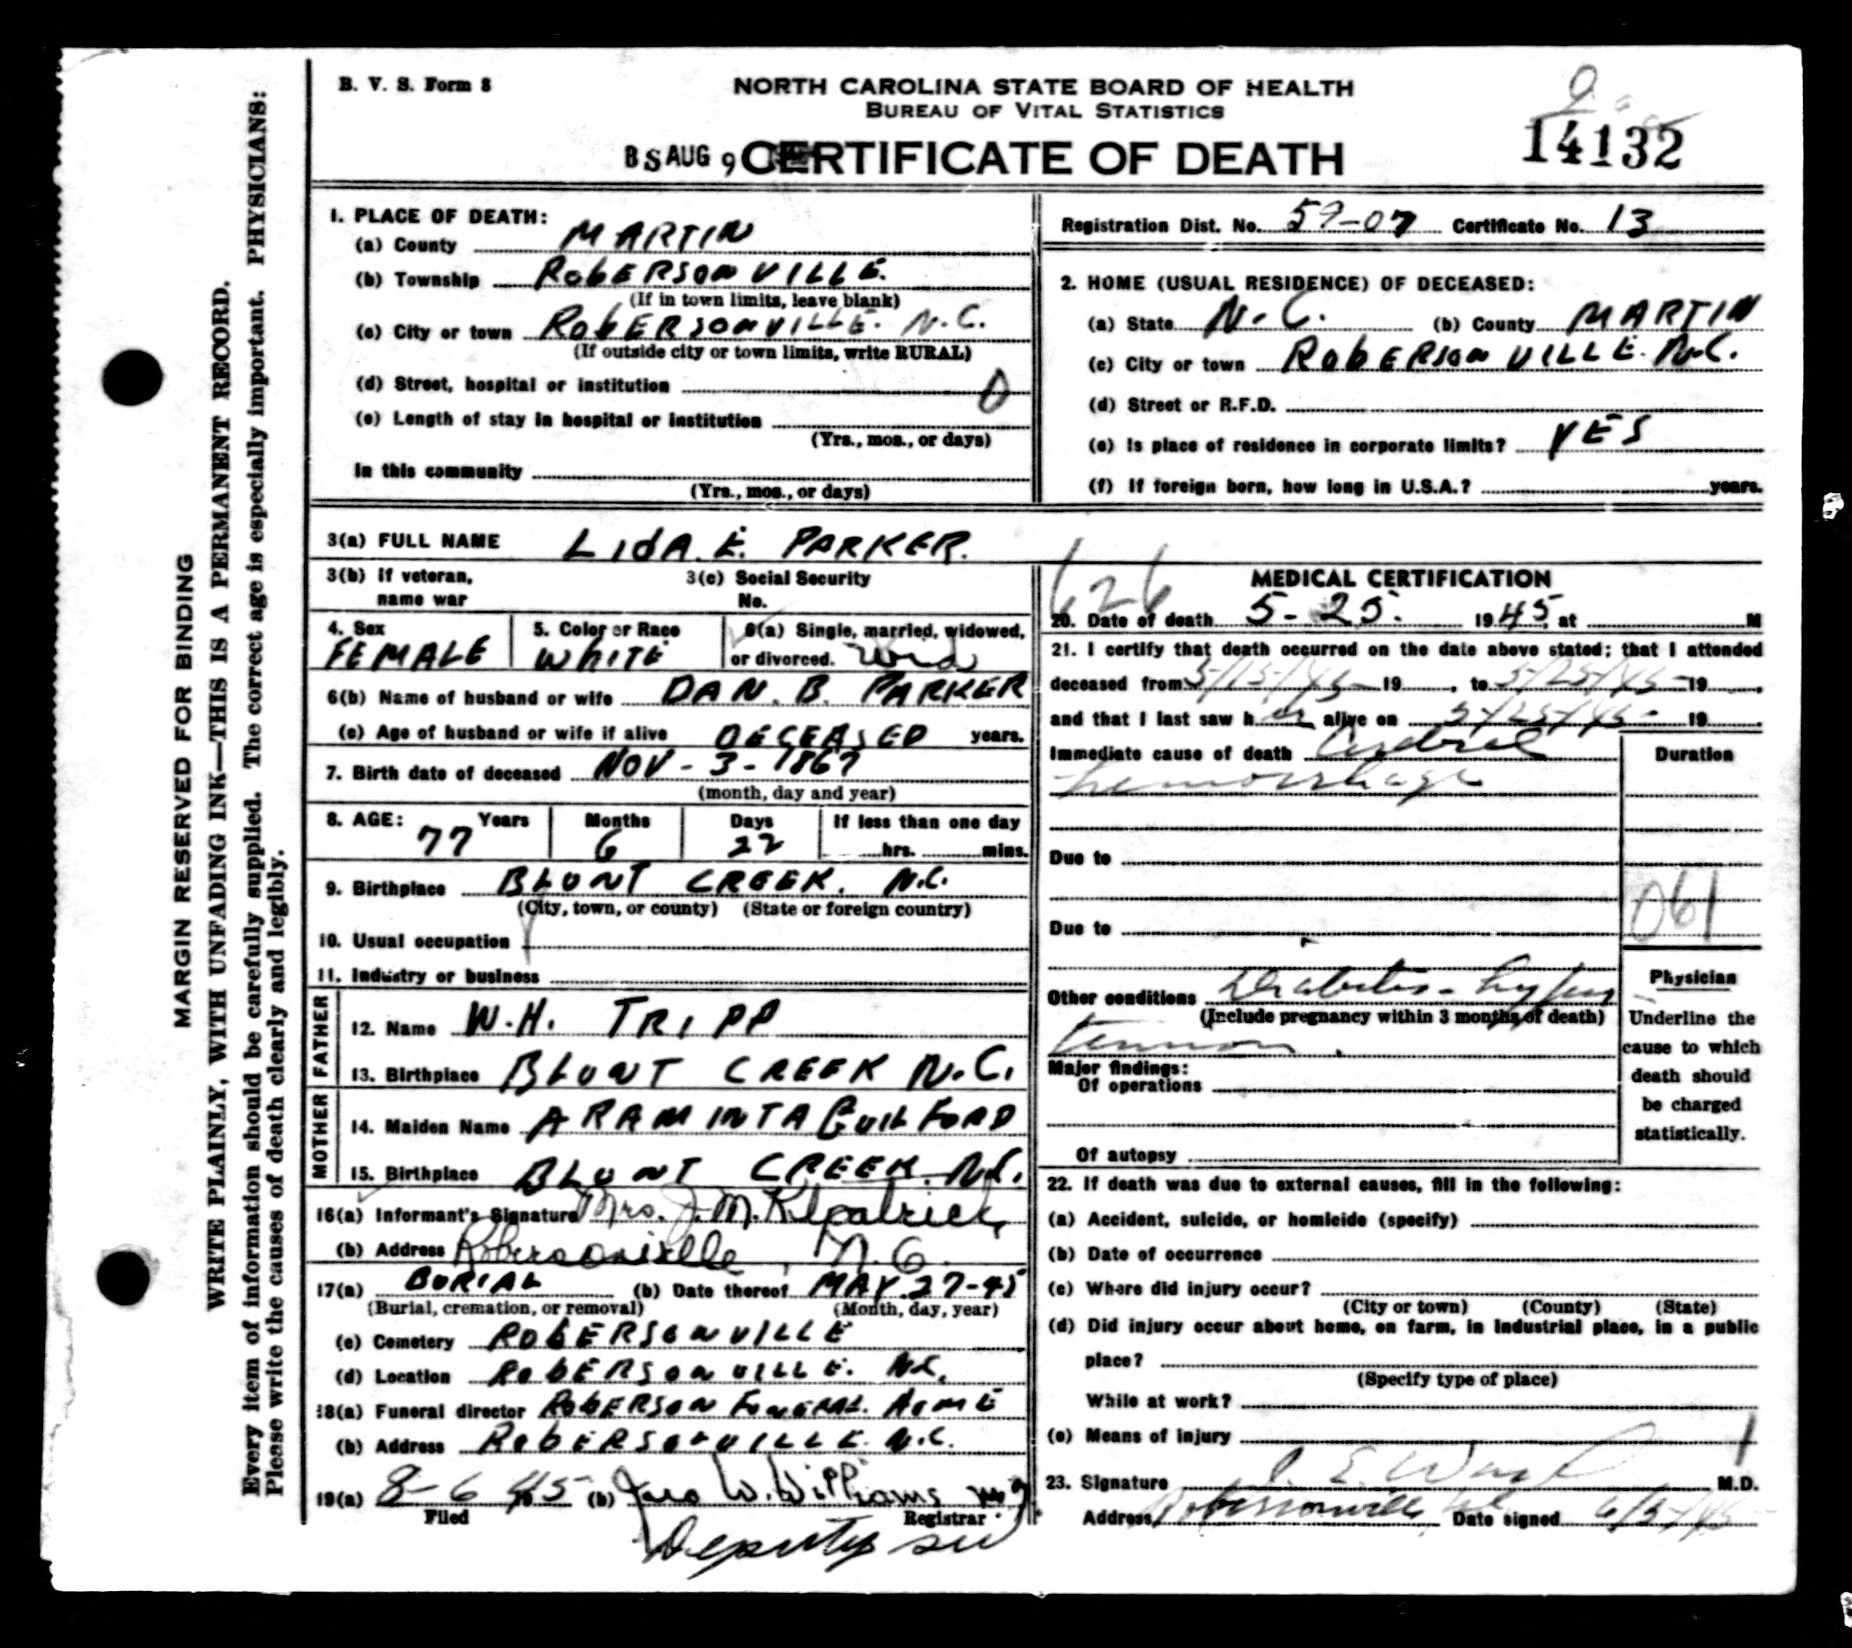 B. V. S. Form 8
NORTH CAROLINA STATE BOARD OF HEALTH
BUREAU OF VITAL STATISTICS
BS AUG 9 CERTIFICATE OF DEATH
14132
1. PLACE OF DEATH:
(a) County MARTIN
(b) Township ROBERSONVILLE.
(If in town limits, leave blank)
(c) City or town ROBERSONVILLE. N.C.
(If outside city or town limits, write RURAL)
(d) Street, hospital or institution 0
(e) Length of stay in hospital or institution
(Yrs., mos., or days)
In this community
(Yrs., mos., or days)
Registration Dist. No. 59-07 Certificate No. 13
2. HOME (USUAL RESIDENCE) OF DECEASED:
(a) State N.C. (b) County MARTIN
(c) City or town ROBERSONVILLE. N.C.
(d) Street or R.F.D.
(e) Is place of residence in corporate limits? YES
(f) If foreign born, how long in U.S.A.? years.
3(a) FULL NAME LIDA. E. PARKER.
3(b) If veteran, name war
3(c) Social Security No.
4. Sex FEMALE
5. Color or Race WHITE
6(a) Single, married, widowed, or divorced. Wid
6(b) Name of husband or wife DAN. B. PARKER
(c) Age of husband or wife if alive DECEASED years.
7. Birth date of deceased NOV-3-1867
(month, day and year)
8. AGE: 77 Years 6 Months 22 Days If less than one day
hrs. mins.
9. Birthplace BLUNT CREEK. N.C.
(City, town, or county) (State or foreign country)
10. Usual occupation
11. Industry or business
FATHER
12. Name W.H. TRIPP
13. Birthplace BLUNT CREEK N.C.
MOTHER
14. Maiden Name ARAMINTA GUILFORD
15. Birthplace BLUNT CREEK. N.C.
16(a) Informant's Signature Mrs. J. M. Kilpatrick
(b) Address Robersonville, N.C.
17(a) BURIAL (b) Date thereof MAY 27-45
(Burial, cremation, or removal) (Month, day, year)
(c) Cemetery ROBERSONVILLE
(d) Location ROBERSONVILLE. N.C.
18(a) Funeral director ROBERSON FUNERAL. HOME
(b) Address ROBERSONVILLE. N.C.
19(a) 8-6 1945 (b) Jno W. Williams
Filed Registrar
Deputy
626
MEDICAL CERTIFICATION
20. Date of death 5-25. 1945, at M
21. I certify that death occurred on the date above stated; that I attended
deceased from 5/15/45 19 , to 5/25/45 19 ,
and that I last saw her alive on 5/25/45 19 .
Immediate cause of death Cerebral
hemorrhage
Duration
Due to
061
Due to
Other conditions Diabetes - hyper
(Include pregnancy within 3 months of death)
tension.
Major findings:
Of operations
Of autopsy
Physician
Underline the
cause to which
death should
be charged
statistically.
22. If death was due to external causes, fill in the following:
(a) Accident, suicide, or homicide (specify)
(b) Date of occurrence
(c) Where did injury occur?
(City or town) (County) (State)
(d) Did injury occur about home, on farm, in industrial place, in a public
place?
(Specify type of place)
While at work?
(e) Means of injury
23. Signature E. Ward M.D.
Address Robersonville Date signed 6/5/45
MARGIN RESERVED FOR BINDING
WRITE PLAINLY, WITH UNFADING INK—THIS IS A PERMANENT RECORD.
Every item of information should be carefully supplied. The correct age is especially important. PHYSICIANS:
Please write the causes of death clearly and legibly.